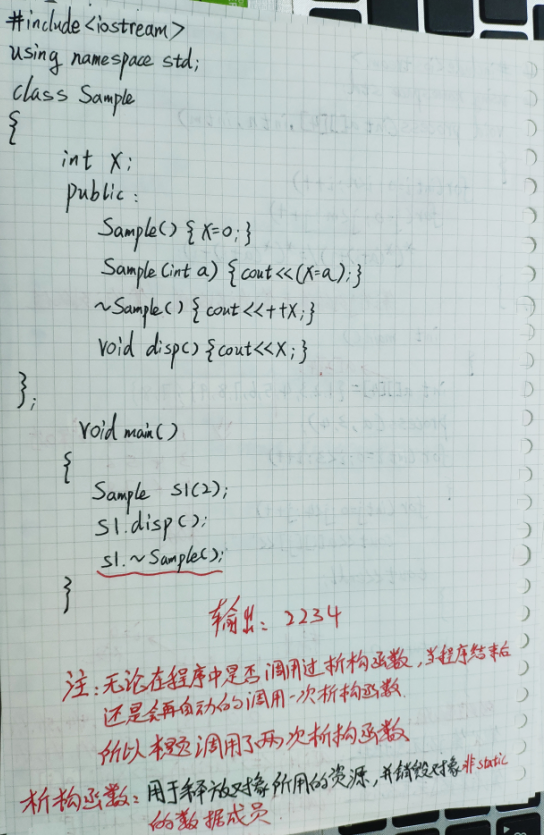 #include<iostream>
using namespace std;
class Sample
{
int X;
public:
Sample() {X=0;}
Sample(int a) {cout<<(X=a);}
~Sample() {cout<<++X;}
void disp() {cout<<X;}
};
void main()
{
Sample S1(2);
S1.disp();
S1.~Sample();
}
输出: 2234
注:无论在程序中是否调用过析构函数,当程序结束后
还是会再自动的调用一次析构函数
所以本题调用了两次析构函数
析构函数:用于释放对象所用的资源,并销毁对象非static
的数据成员